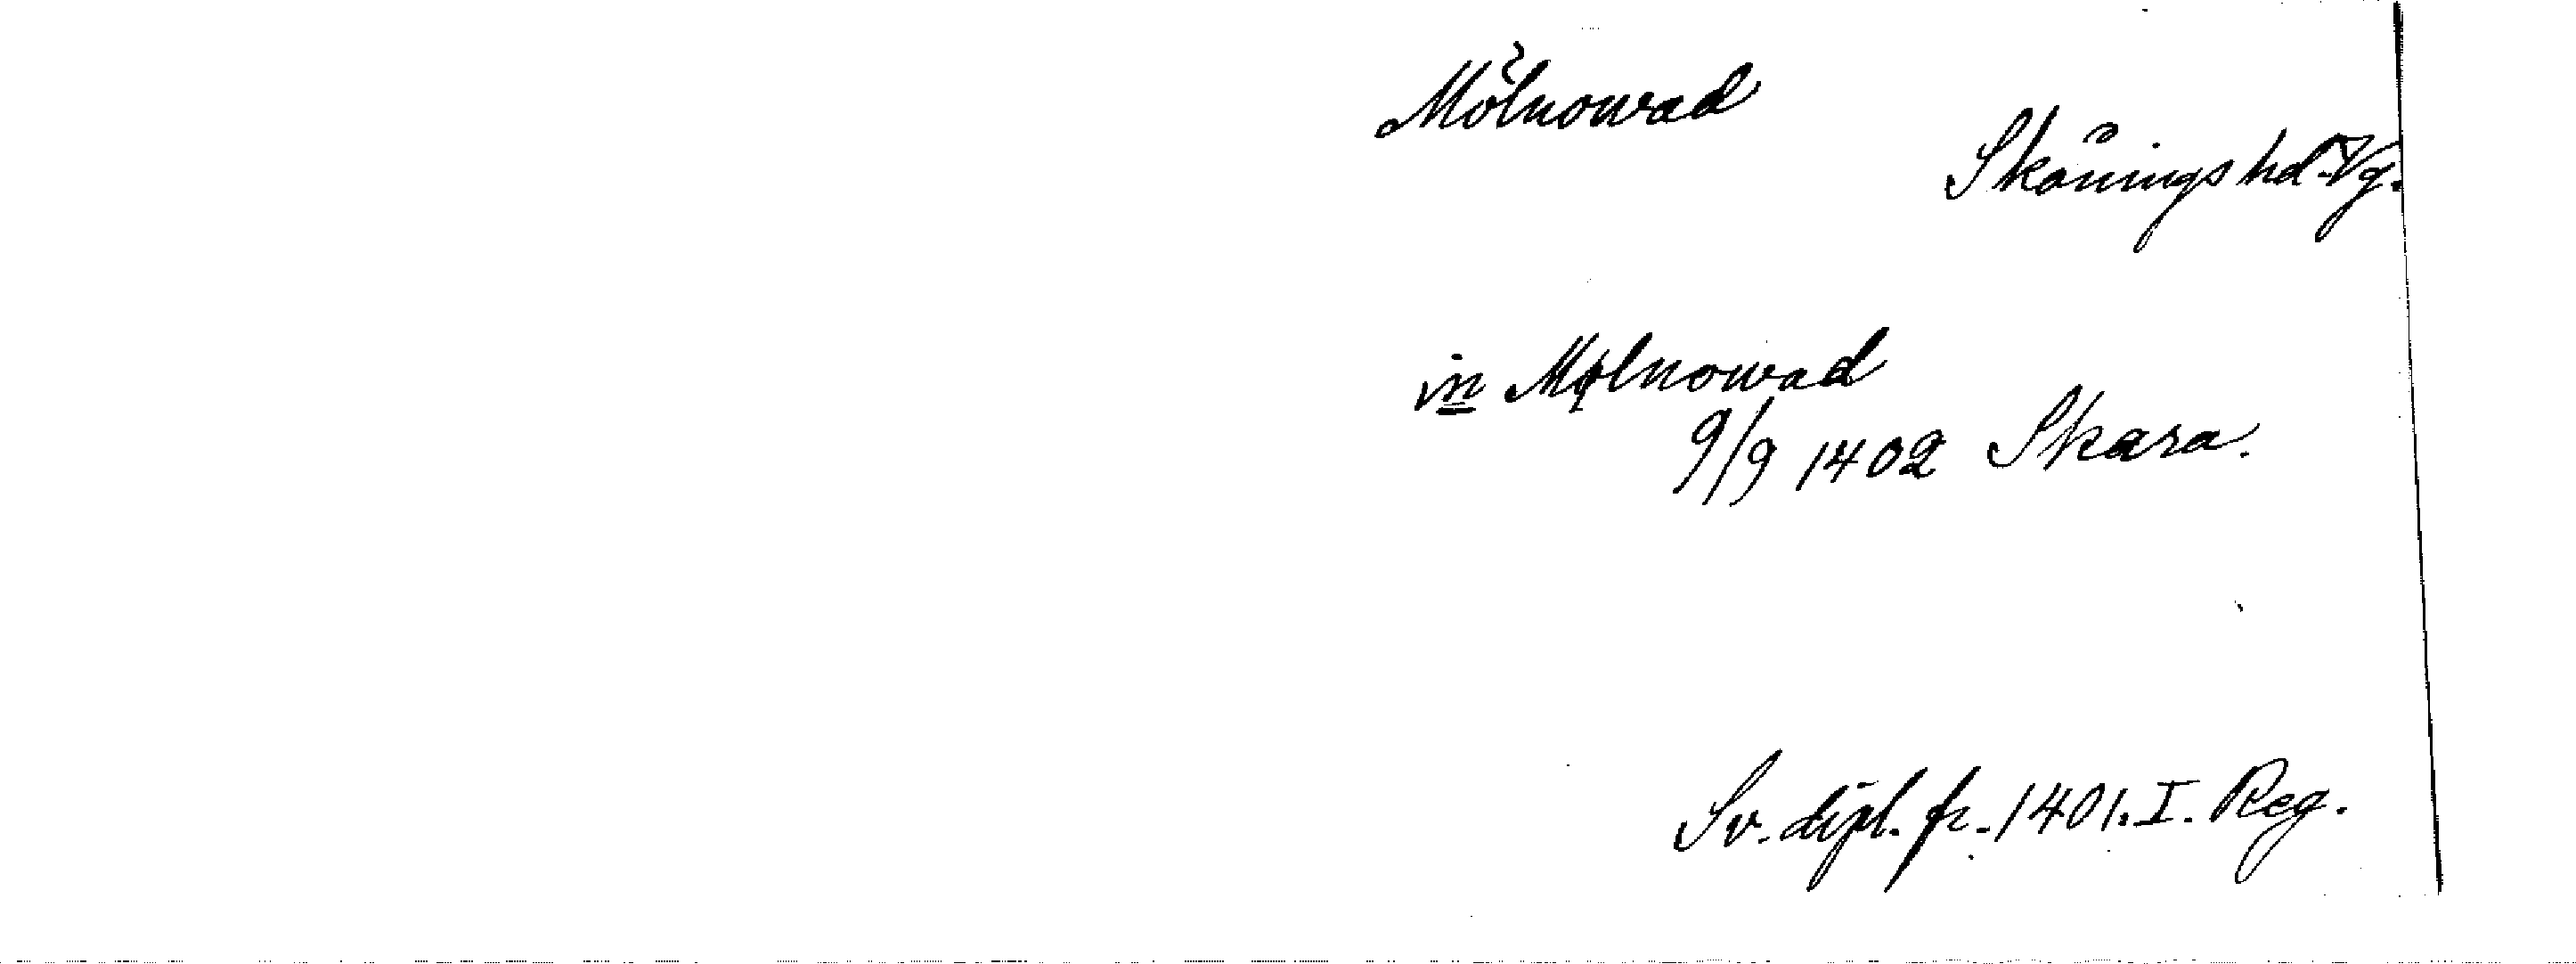 Mölnowad
Skånings hd. Vg.
in Mølnowad
9/9 1402 Skara.
Sv. dipl. fr. 1401. I. Reg.